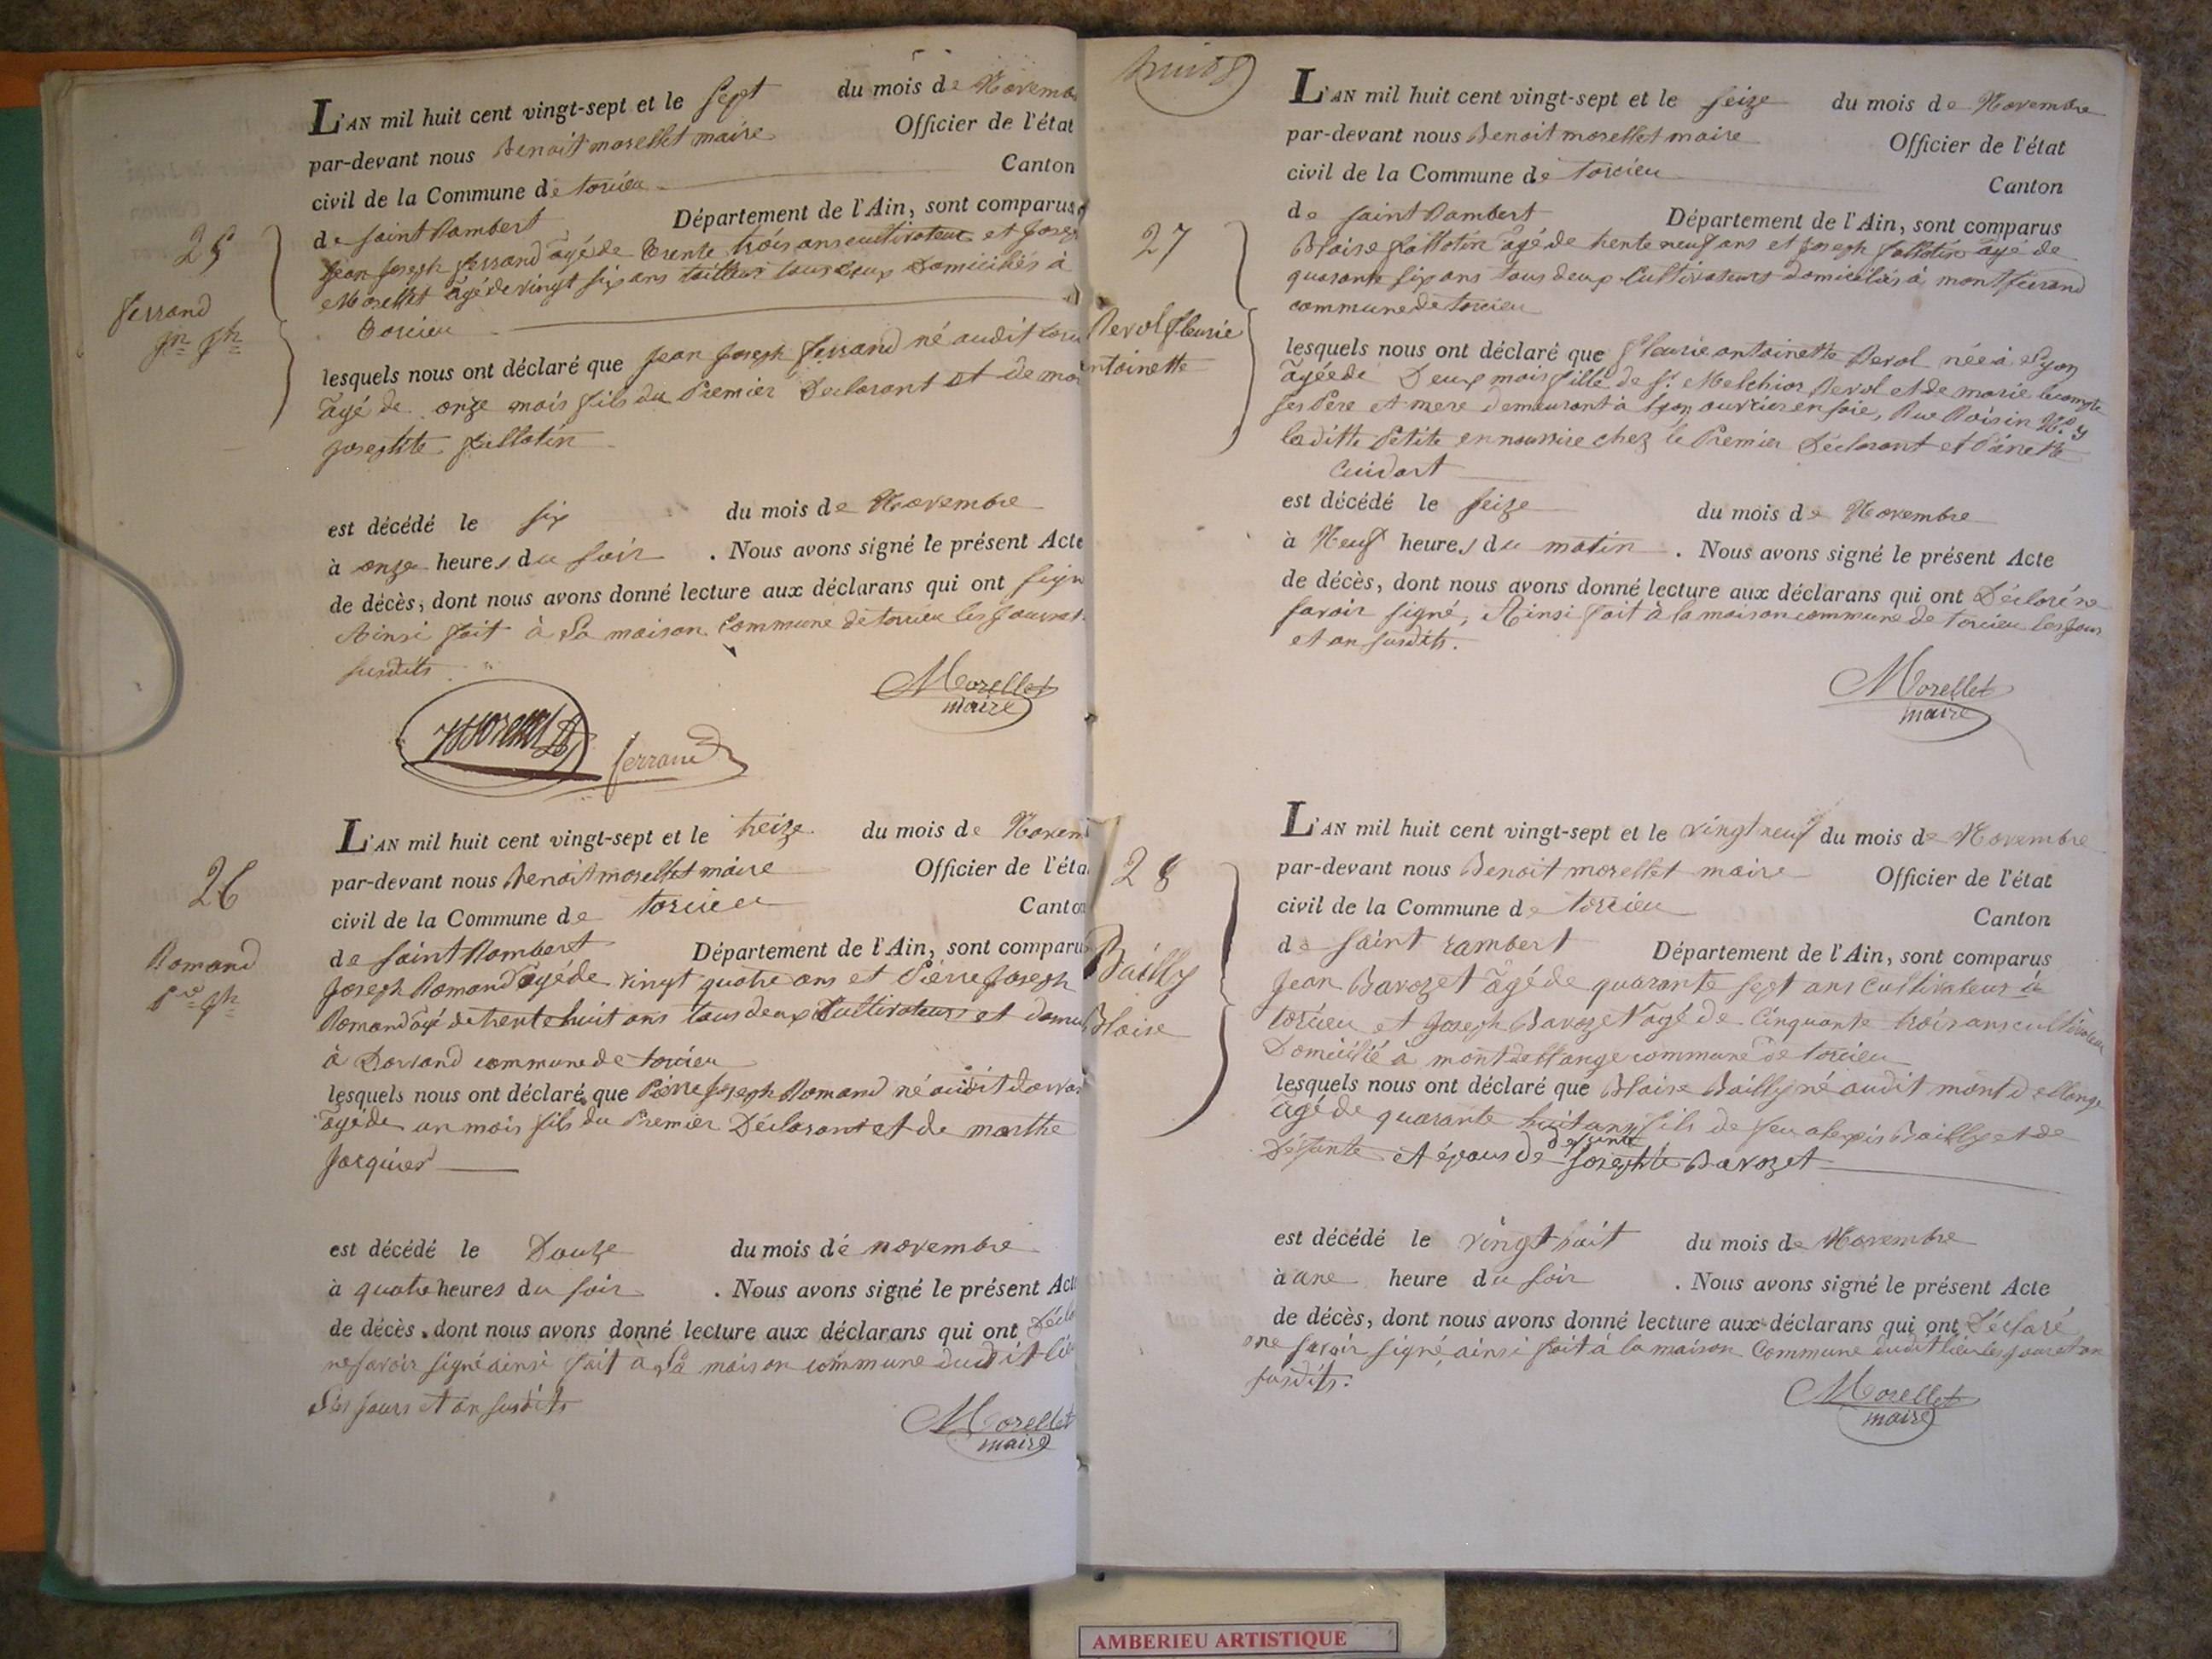 L'AN mil huit cent vingt-sept et le sept du mois de Novemb
par-devant nous Benoit morellet maire Officier de l'état
civil de la Commune de torcieu Canton
de saint Rambert Département de l'Ain, sont comparus
25
Jean Joseph ferrand âgé de trente trois ans cultivateur et Josep
Morellet âgé de vingt six ans tailleur tous deux Domiciliés à
torcieu
ferrand
jn jh
lesquels nous ont déclaré que Jean Joseph ferrand né audit torci
âgé de onze mois fils du Premier Declarant et de
Josephte fillotin
est décédé le six du mois de Novembre
à onze heures du soir . Nous avons signé le présent Acte
de décès, dont nous avons donné lecture aux déclarans qui ont sign
Ainsi fait à La maison Commune de torcieu les jour
susdits
Morellet
maire
ferrand
L'AN mil huit cent vingt-sept et le treize du mois de Novem
par-devant nous benoit morellet maire Officier de l'éta
civil de la Commune de torcieu Canton
de saint Rambert Département de l'Ain, sont comparu
26
Romand
pre jh
Joseph Romand âgé de vingt quatre ans et Pierre Joseph
Romand âgé de trente huit ans tous deux Cultivateurs et
à Dorvand commune de torcieu
lesquels nous ont déclaré que Pierre Joseph Romand né audit dorvan
âgé de un mois fils du Premier Déclarant et de marthe
Jacquier
est décédé le Douze du mois de novembre
à quatre heures du soir . Nous avons signé le présent Acte
de décès, dont nous avons donné lecture aux déclarans qui ont Décla
ne savoir signé ainsi fait à La maison commune dudit lie
Les jours et an susdits
Morellet
maire
L'AN mil huit cent vingt-sept et le seize du mois de Novembre
par-devant nous Benoit morellet maire Officier de l'état
civil de la Commune de torcieu Canton
de saint Rambert Département de l'Ain, sont comparus
27
Blaise fillotin âgé de trente neuf ans et Joseph fillotin âgé de
quarante six ans tous deux Cultivateurs domiciliés à montferrand
commune de torcieu
Revol fleurie
antoinette
lesquels nous ont déclaré que fleurie antoinette Revol née à Lyon
âgée de Deux mois fille de sr. Melchior Revol et de marie lecompte
ses Pere et mere demeurant à Lyon ouvrier en soie, Rue Roisin No. 4
laditte Petite en nourrice chez le Premier Déclarant et
Cuidart
est décédé le seize du mois de Novembre
à Neuf heures du matin . Nous avons signé le présent Acte
de décès, dont nous avons donné lecture aux déclarans qui ont Déclaré ne
savoir signé, Ainsi fait à la maison commune de torcieu les jour
et an susdits.
Morellet
maire
L'AN mil huit cent vingt-sept et le vingt neuf du mois de Novembre
par-devant nous Benoit morellet maire Officier de l'état
civil de la Commune de torcieu Canton
de saint rambert Département de l'Ain, sont comparus
28
Bailly
Blaise
Jean Bavozet âgé de quarante sept ans Cultivateur à
torcieu et Joseph Bavozet âgé de Cinquante trois ans cultivateur
Domicilié à mont de llange commune de torcieu
lesquels nous ont déclaré que Blaise Bailly né audit mont de llange
âgé de quarante huit ans fils de feu alexis Bailly et de
defunte
Défunte et époux de Josephte Bavozet
est décédé le vingt huit du mois de Novembre
à une heure du soir . Nous avons signé le présent Acte
de décès, dont nous avons donné lecture aux déclarans qui ont Déclaré
ne savoir signé, ainsi fait à la maison Commune dudit lieu les jour et an
susdits.
Morellet
maire
AMBERIEU ARTISTIQUE